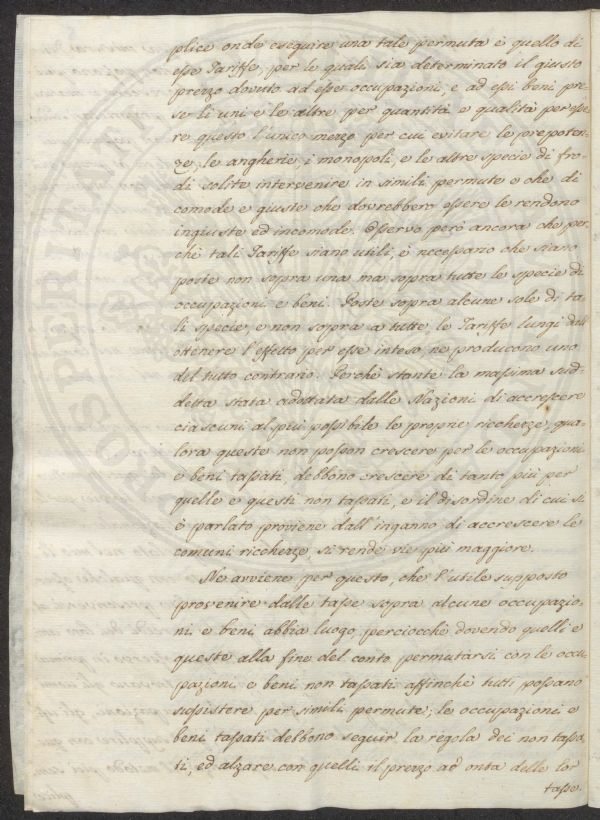 plice onde eseguire una tale permuta è quello di
esse Tariffe, per le quali sia determinato il giusto
prezzo dovuto ad esse occupazioni, e ad essi beni, pre-
se li uni e le altre per quantità e qualità per esse-
re questo l'unico mezzo per cui evitare le prepoten-
ze, le angherie, i monopoli, e le altre specie di fro-
di solite intervenire in simili permute e che di
comode e giuste che dovrebbero essere le rendono
ingiuste ed incomode. Osservo però ancora che per-
chè tali Tariffe siano utili, è necessario che siano
poste non sopra una ma sopra tutte le specie di
occupazioni e beni. Poste sopra alcune sole di ta-
li specie, e non sopra a tutte, le Tariffe lungi dall'
ottenere l'effetto per esse inteso, ne producono uno
del tutto contrario. Perchè stante la massima sud-
detta stata adottata dalle Nazioni di accrescere
ciascuni al più possibile le proprie ricchezze, qua-
lora queste non posson crescere per le occupazioni
e beni tassati, debbono crescere di tanto più per
quelle e questi non tassati, e il disordine di cui si
è parlato proviene dall'inganno di accrescere le
comuni ricchezze, si rende vie più maggiore.
Ne avviene per questo, che l'utile supposto
provenire dalle tasse sopra alcune occupazio-
ni e beni abbia luogo, perciocchè dovendo quelli e
queste alla fine del conto permutarsi con le occu-
pazioni e beni non tassati affinchè tutti possano
sussistere per simili permute; le occupazioni e
beni tassati debbono seguir la regola dei non tassa-
ti, ed alzare con quelli il prezzo ad onta delle lor
tasse.
PROSPERITATI